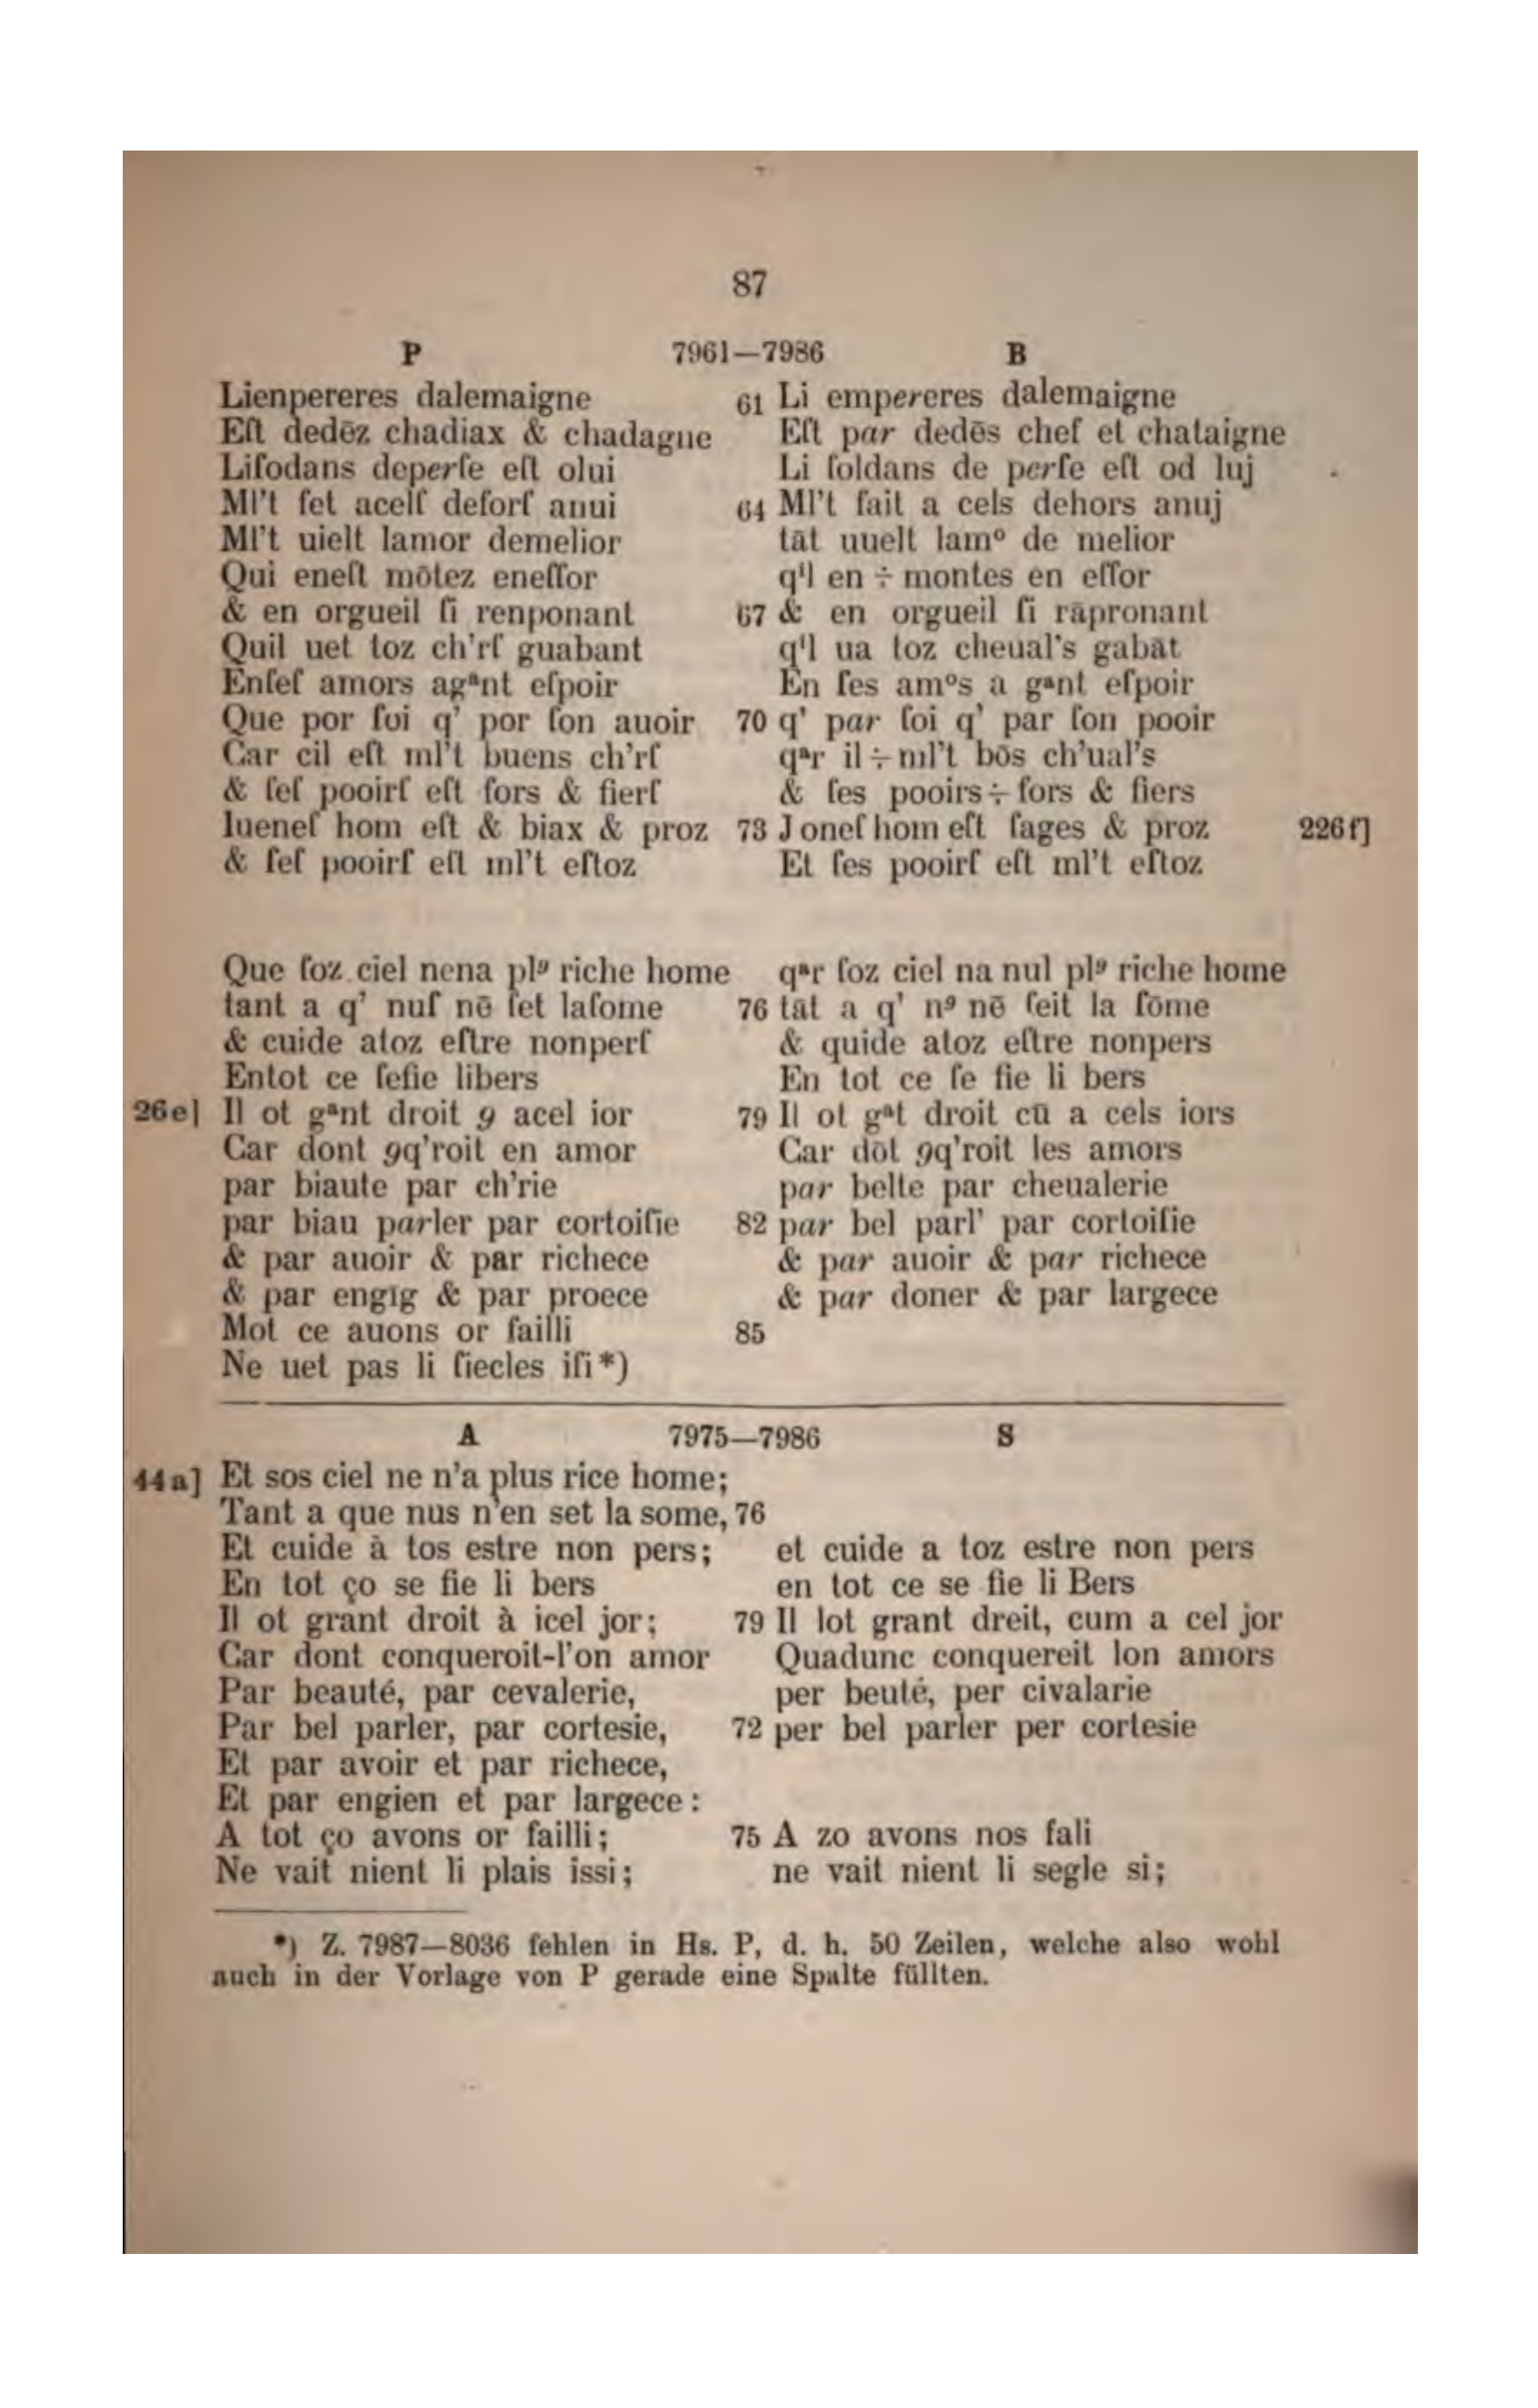 87
P 7961—7986 B
Lienpereres dalemaigne 61 Li empereres dalemaigne
Eſt dedēz chadiax & chadagne Eſt par dedēs chef et chataigne
Liſodans deperſe eſt olui Li ſoldans de perſe eſt od luj
Ml't ſet acelſ deforſ anui 64 Ml't fait a cels dehors anuj
Ml't uielt lamor demelior tāt uuelt lamº de melior
Qui eneſt mōtez eneſſor qⁱl en ÷ montes en eſſor
& en orgueil ſi renponant 67 & en orgueil ſi rāpronant
Quil uet toz ch'rſ guabant qⁱl ua toz cheual's gabāt
Enſeſ amors agᵃnt eſpoir En ſes amºs a gᵃnt eſpoir
Que por ſoi q' por ſon auoir 70 q' par ſoi q' par ſon pooir
Car cil eſt ml't buens ch'rſ qᵃr il ÷ ml't bōs ch'ual's
& ſeſ pooirſ eſt fors & fierſ & ſes pooirs ÷ fors & fiers
Iueneſ hom eſt & biax & proz 73 Joneſ hom eſt ſages & proz 226f]
& ſeſ pooirſ eſt ml't eſtoz Et ſes pooirſ eſt ml't eſtoz
Que ſoz ciel nena plꝰ riche home qᵃr ſoz ciel na nul plꝰ riche home
tant a q' nuſ nē ſet laſome 76 tāt a q' nꝰ nē ſeit la ſōme
& cuide atoz eſtre nonperſ & quide atoz eſtre nonpers
Entot ce ſefie libers En tot ce ſe fie li bers
26e] Il ot gᵃnt droit 9 acel ior 79 Il ot gᵃt droit cū a cels iors
Car dont 9q'roit en amor Car dōt 9q'roit les amors
par biaute par ch'rie par belte par cheualerie
par biau parler par cortoiſie 82 par bel parl' par cortoiſie
& par auoir & par richece & par auoir & par richece
& par engīg & par proece & par doner & par largece
Mot ce auons or failli 85
Ne uet pas li ſiecles iſi*)
A 7975—7986 S
44a] Et sos ciel ne n'a plus rice home;
Tant a que nus n'en set la some, 76
Et cuide à tos estre non pers; et cuide a toz estre non pers
En tot ço se fie li bers en tot ce se fie li Bers
Il ot grant droit à icel jor; 79 Il lot grant dreit, cum a cel jor
Car dont conqueroit-l'on amor Quadunc conquereit lon amors
Par beauté, par cevalerie, per beuté, per civalarie
Par bel parler, par cortesie, 72 per bel parler per cortesie
Et par avoir et par richece,
Et par engien et par largece:
A tot ço avons or failli; 75 A zo avons nos fali
Ne vait nient li plais issi; ne vait nient li segle si;
*) Z. 7987—8036 fehlen in Hs. P, d. h. 50 Zeilen, welche also wohl
auch in der Vorlage von P gerade eine Spalte füllten.